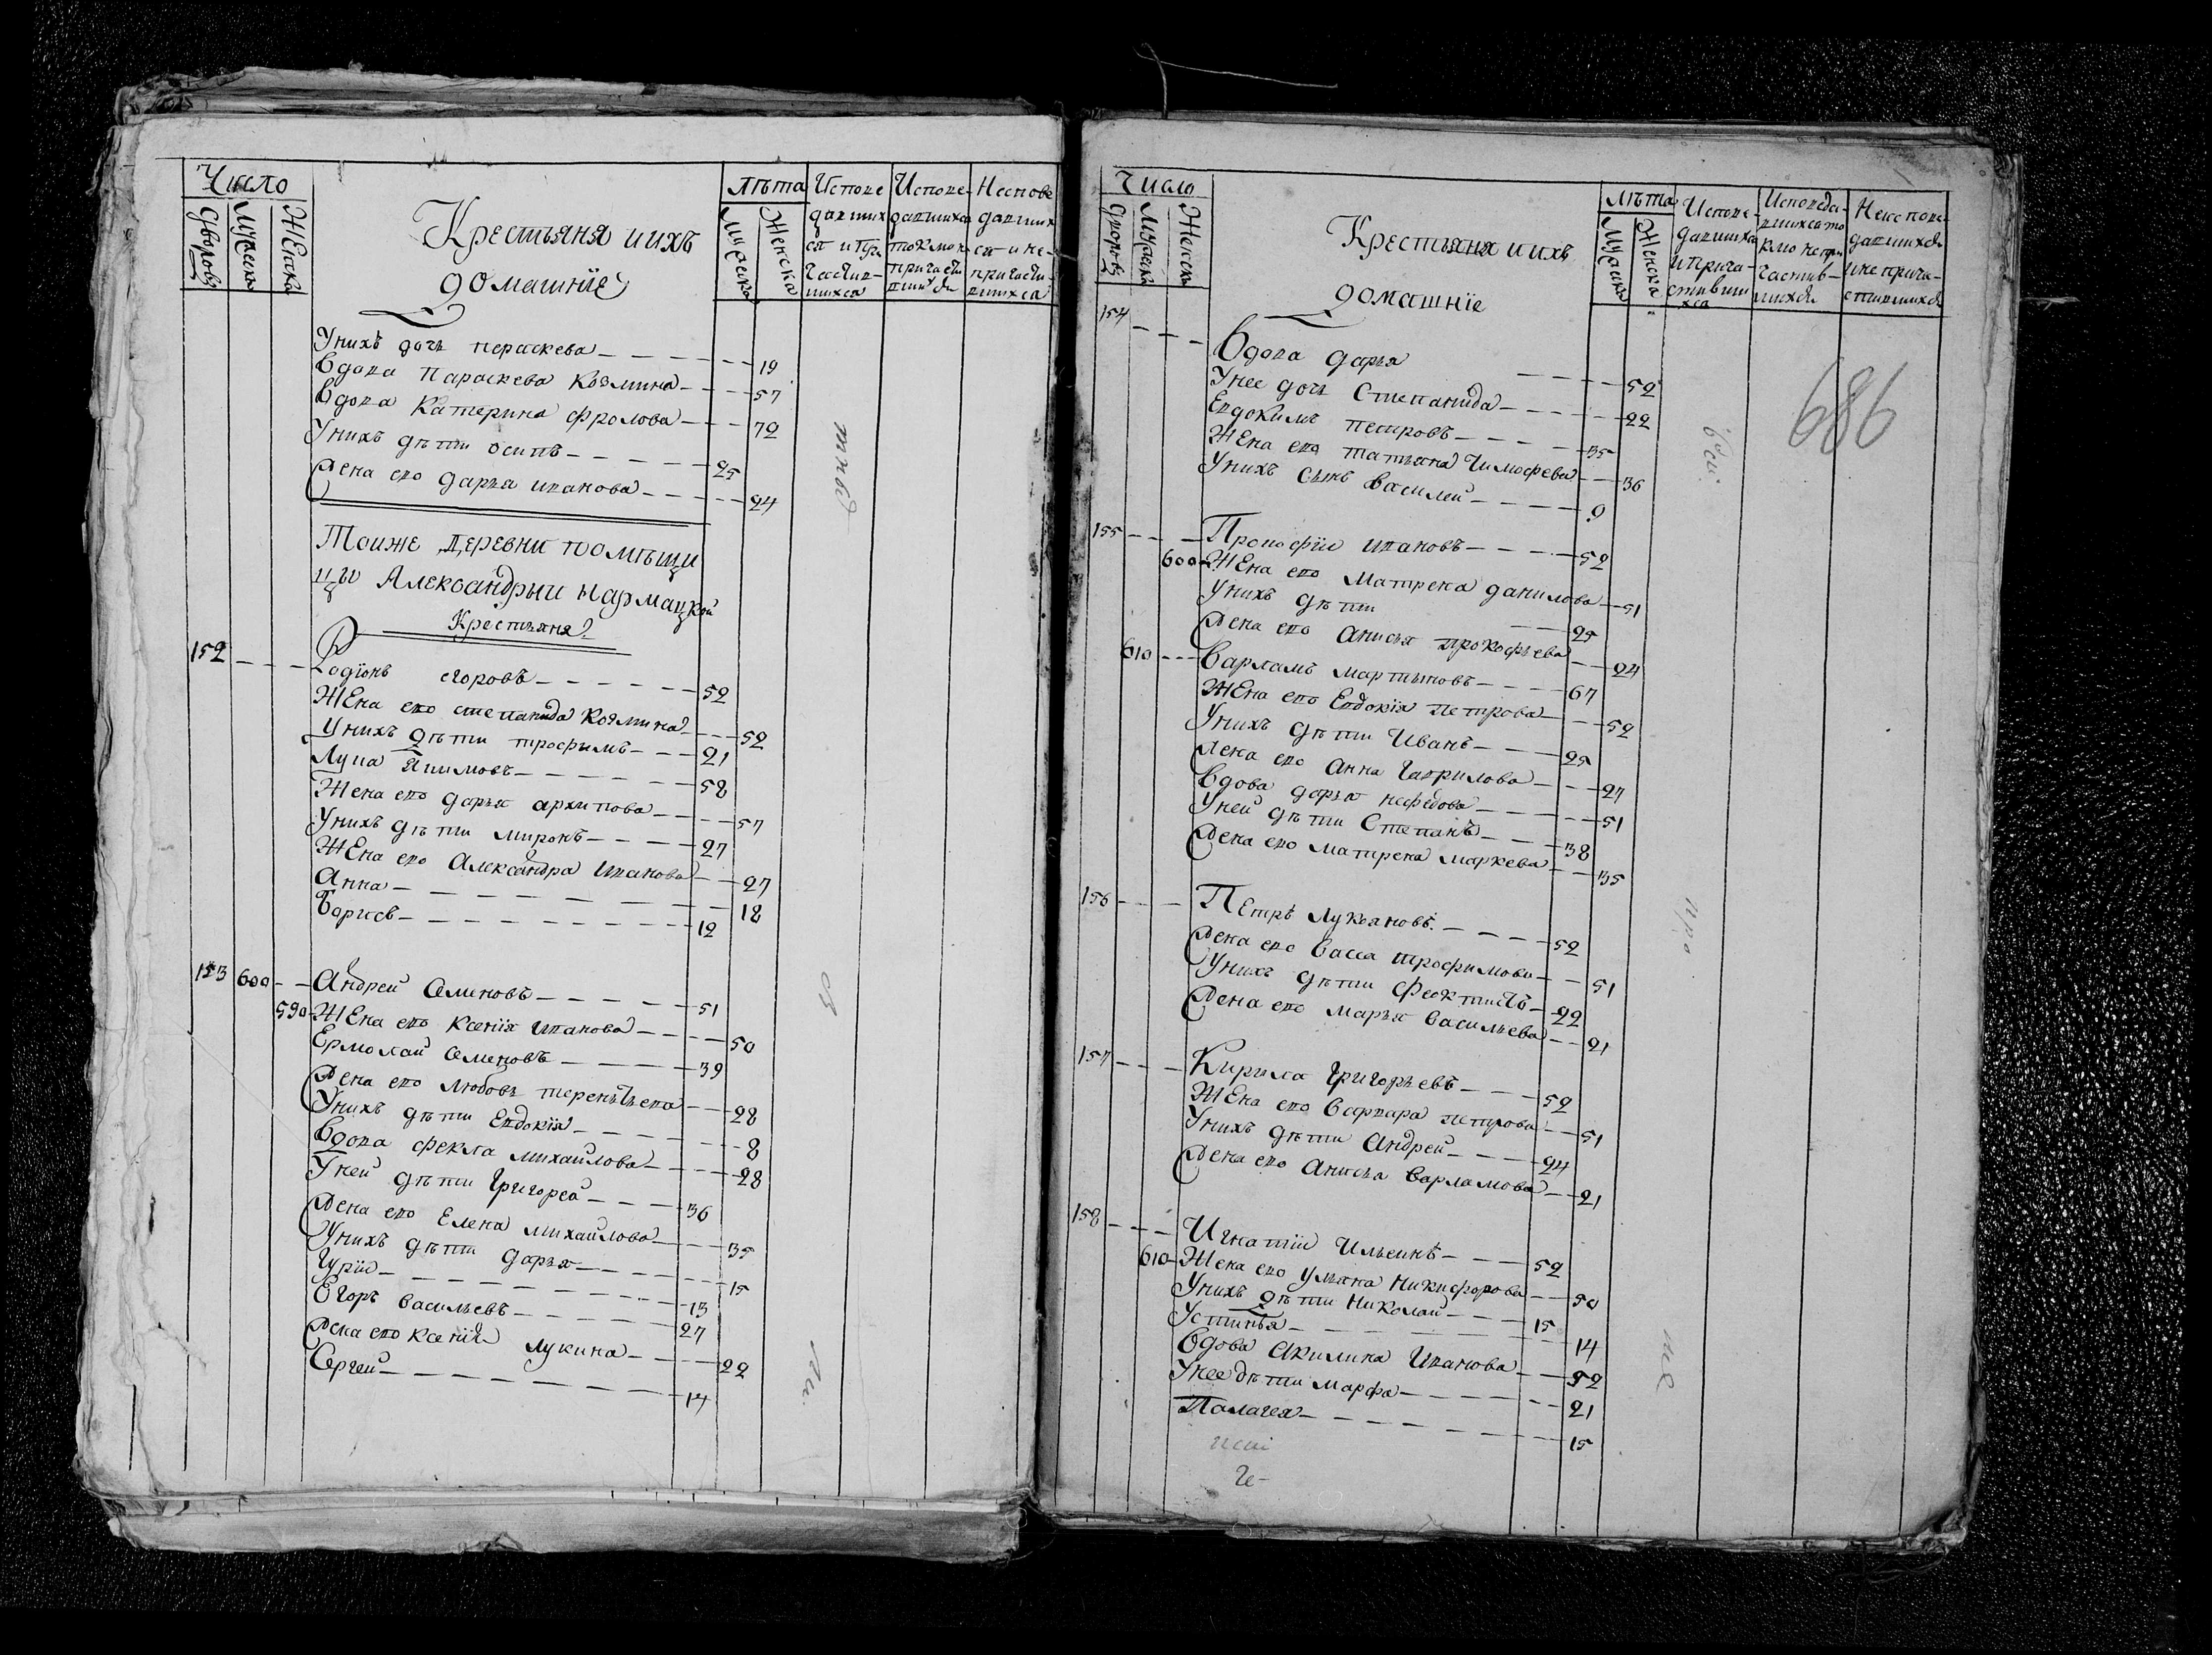 Число
Лѣта
дворовъ
Мужеска
Женска
Крестьяня и ихъ
домашнїе
Мужска
Женска
Исповедавшихся и причастившихся
Исповедавшихся токмо непричастившихся
Неисповедавшихся и непричастившихся
Унихъ дочь параскева 19
Вдова Параскева Козмина 57
Вдова Катерина фролова 72
Унихъ дѣти осипъ 25
Жена его дарья иванова 24
Тоиже деревни помѣщи
цы Александры Нармацкой
Крестьяня
152 Родїонъ егоровъ 52
Жена его степанида Козмина 52
Унихъ дѣти трофымъ 21
Лука Якимовъ 58
Жена его дарья архипова 57
Унихъ дѣти миронъ 27
Жена его Александра иванова 27
Анна 18
Борисъ 12
153 600 Андрей Семеновъ 51
590 Жена его ксенїя иванова 50
Ермолай Семеновъ 39
Жена его любовь терентьева 28
Унихъ дѣти Евдокїя 8
Вдова фекла михайлова 28
Уней дѣти Григорей 36
Жена его Елена михайлова 35
Унихъ дѣти дарья 15
Гурїй 13
Егоръ васильевъ 27
Жена его ксенїя лукина 22
Сергей 14
Число
Лѣта
дворовъ
Мужеска
Женска
Крестьяня и ихъ
домашнїе
Мужска
Женска
Исповедавшихся и причастившихся
Исповедавшихся токмо непричастившихся
Неисповедавшихся и непричастившихся
686
154 Вдова дарья 52
Унее дочь Степанида 22
Евдокимъ петровъ 35
Жена его татьяна тимофева 36
Унихъ сынъ василей 9
155 Прокофїй ивановъ 52
600 Жена его матрена данилова 51
Унихъ дѣти 25
Жена его анисья прокофьева 24
610 Варламъ мартыновъ 67
Жена его Евдокїя петрова 52
Унихъ дѣти Иванъ 25
Жена его анна гаврилова 27
Вдова дарья нефедова 51
Уней дѣти Степанъ 38
Жена его матрена маркева 35
156 Петръ Лукояновъ 52
Жена его васса трофимова 51
Унихъ дѣти феоктистъ 22
Жена его марья васильева 21
157 Кирила григорьевъ 52
Жена его варвара петрова 51
Унихъ дѣти андрей 24
Жена его анисья варламова 21
158 Игнатїй Ильинъ 52
610 Жена его ульяна никифорова 50
Унихъ дѣти николай 15
Устинья 14
Вдова акилина иванова 52
Унее дѣти марфа 21
Палагея 15